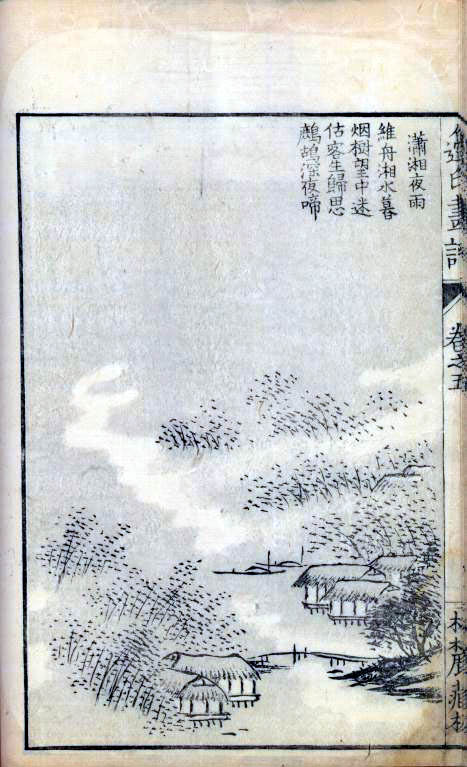 畫譜
卷之五
藏板
瀟湘夜雨
維舟湘水暮
烟樹望中迷
估客生歸思
鷓鴣深夜啼